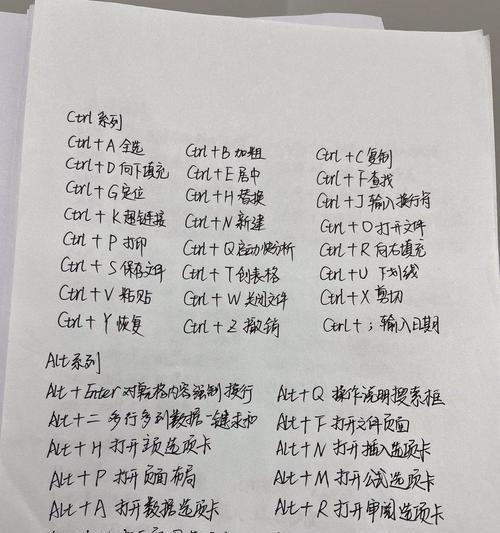 Ctrl系列
Ctrl+A 全选 Ctrl+B 加粗 Ctrl+C复制
Ctrl+D向下填充 Ctrl+E居中 Ctrl+F查找
Ctrl+G定位 Ctrl+H替换 Ctrl+J输入换行符
Ctrl+K超链接 Ctrl+N新建 Ctrl+O打开文件
Ctrl+P打印 Ctrl+Q启动快分析 Ctrl+R向右填充
Ctrl+S保存文件 Ctrl+T创表格 Ctrl+U下划线
Ctrl+V粘贴 Ctrl+W关闭文件 Ctrl+X剪切
Ctrl+Y恢复 Ctrl+Z撤销 Ctrl+;输入日期
Alt系列
Alt+Enter对 格内容强制换行 Alt+Q 操作说明搜索框
Alt+= 多行多列数据一键求和 Alt+F打开文件页面
Alt+H打开主页选项卡 Alt+N打开插入选项卡
Alt+P打开页面布局 Alt+M打开公式选项卡
Alt+A打开数据选项卡 Alt+R打开审阅选项卡